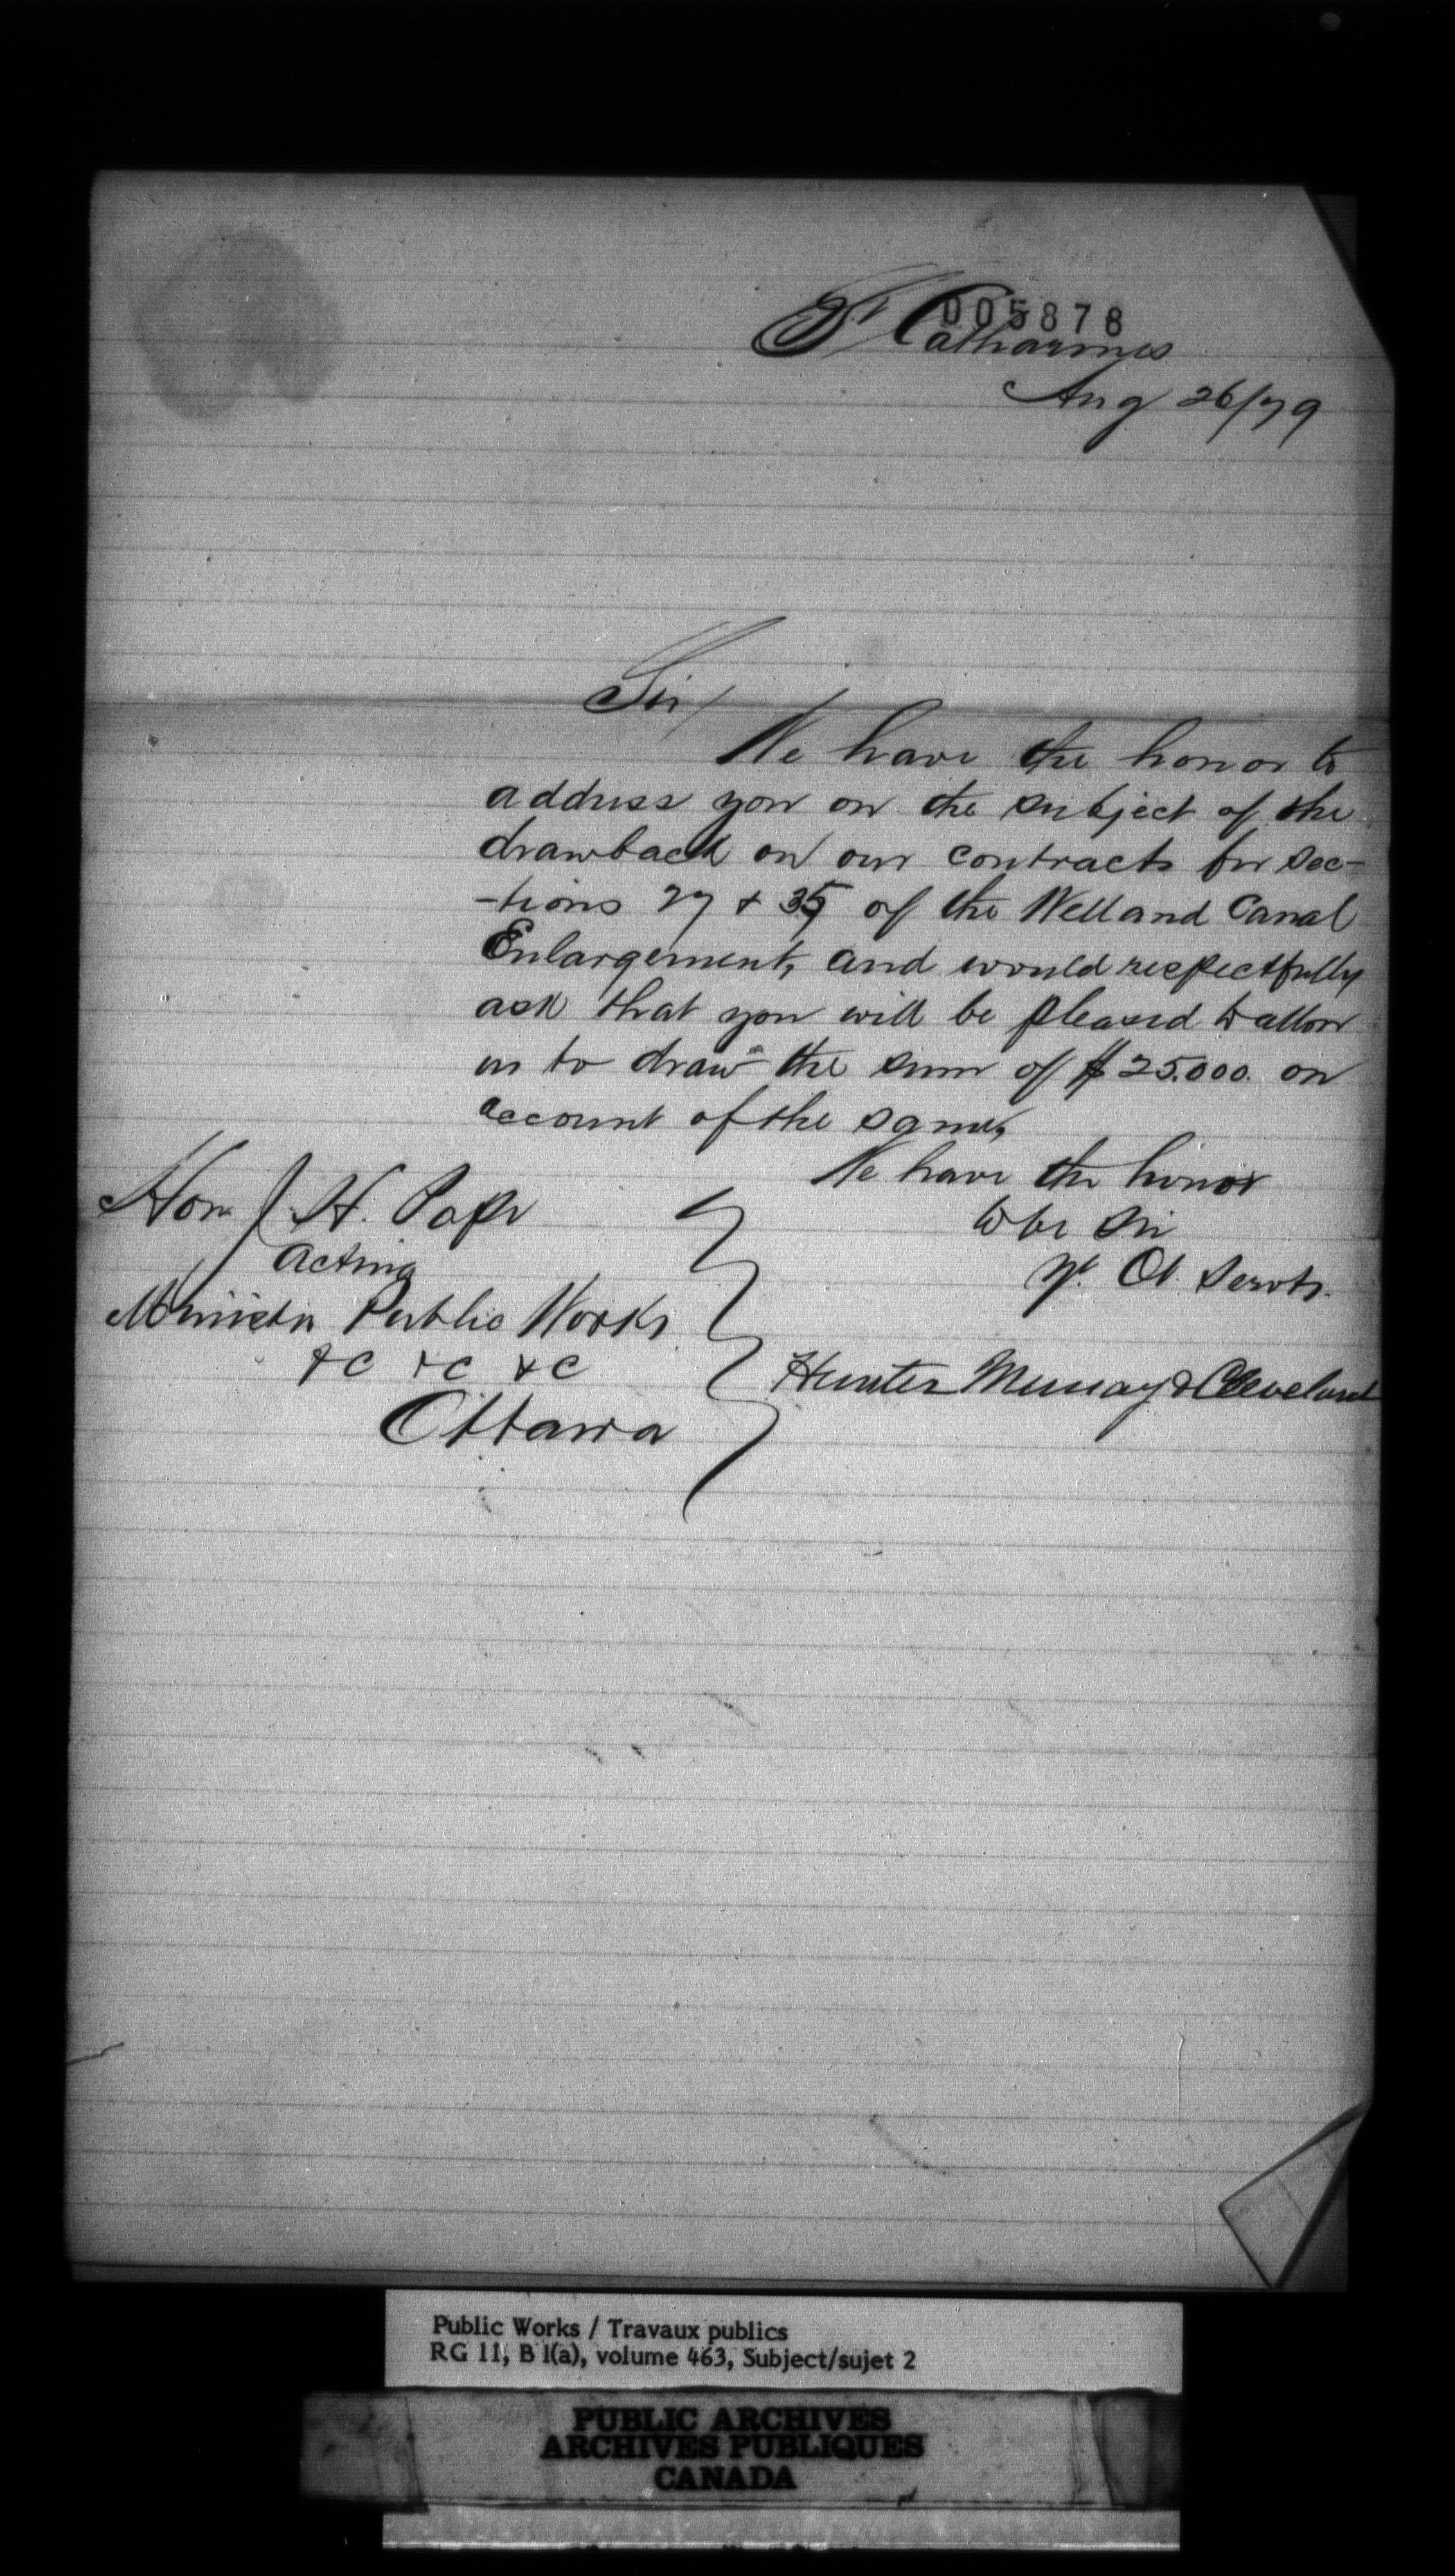 005878
St Catharines
Aug 26/79
Sir/
We have the honor to
address you on the subject of the
drawback on our contracts for sec-
-tions 27 & 35 of the Welland Canal
Enlargement, and would respectfully
ask that you will be pleased to allow
us to draw the sum of $25.000. on
account of the same,
We have the honor
to be Sir
Yr. Ob. Servts.
Hunter Murray & Cleveland
Hon J. H. Pope
Acting
Minister Public Works
&c &c &c
Ottawa
Public Works / Travaux publics
RG 11, B 1(a), volume 463, Subject/sujet 2
PUBLIC ARCHIVES
ARCHIVES PUBLIQUES
CANADA